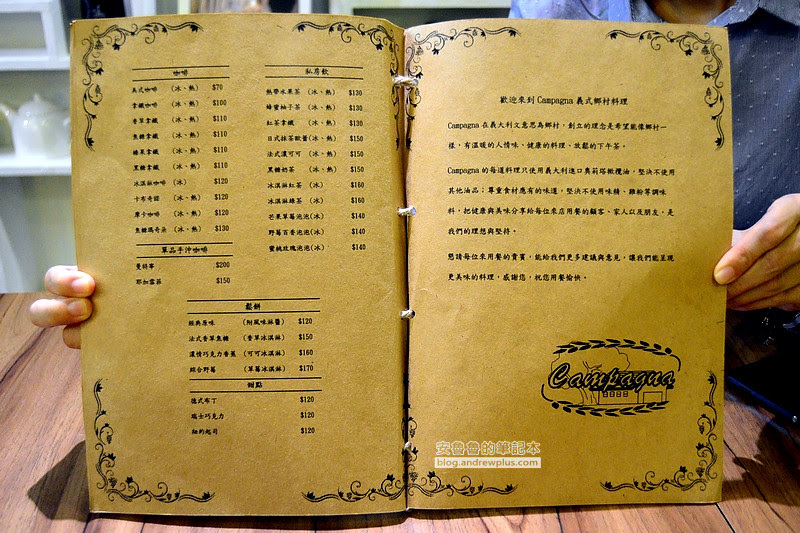 咖啡
美式咖啡 (冰、熱) $70
拿鐵咖啡 (冰、熱) $100
香草拿鐵 (冰、熱) $110
焦糖拿鐵 (冰、熱) $110
榛果拿鐵 (冰、熱) $110
黑糖拿鐵 (冰、熱) $110
冰淇淋咖啡 (冰) $120
卡布奇諾 (冰、熱) $120
摩卡咖啡 (冰、熱) $120
焦糖瑪奇朵 (冰、熱) $130
單品手沖咖啡
曼特寧 $200
耶加雪菲 $150
私房飲
熱帶水果茶 (冰、熱) $130
蜂蜜柚子茶 (冰、熱) $130
紅茶拿鐵 (冰、熱) $130
日式抹茶歐蕾(冰、熱) $150
法式濃可可 (冰、熱) $150
黑糖奶茶 (冰、熱) $150
冰淇淋紅茶 (冰) $160
冰淇淋綠茶 (冰) $160
芒果草莓泡泡(冰) $140
野莓百香泡泡(冰) $140
蜜桃玫瑰泡泡(冰) $140
鬆餅
經典原味 (附風味淋醬) $120
法式香草焦糖 (香草冰淇淋) $150
濃情巧克力香蕉 (可可冰淇淋) $160
綜合野莓 (草莓冰淇淋) $170
甜點
德式布丁 $120
瑞士巧克力 $120
紐約起司 $120
歡迎來到 Campagna 義式鄉村料理
Campagna 在義大利文意思為鄉村，創立的理念是希望能像鄉村一
樣，有溫暖的人情味、健康的料理、放鬆的下午茶。
Campagna 的每道料理只使用義大利進口奧莉塔橄欖油，堅決不使用
其他油品；尊重食材應有的味道，堅決不使用味精、雞粉等調味
料，把健康與美味分享給每位來店用餐的顧客、家人以及朋友，是
我們的理想與堅持。
懇請每位來用餐的貴賓，能給我們更多建議與意見，讓我們能呈現
更美味的料理，感謝您，祝您用餐愉快。
Campagna
安魯魯的筆記本
blog.andrewplus.com